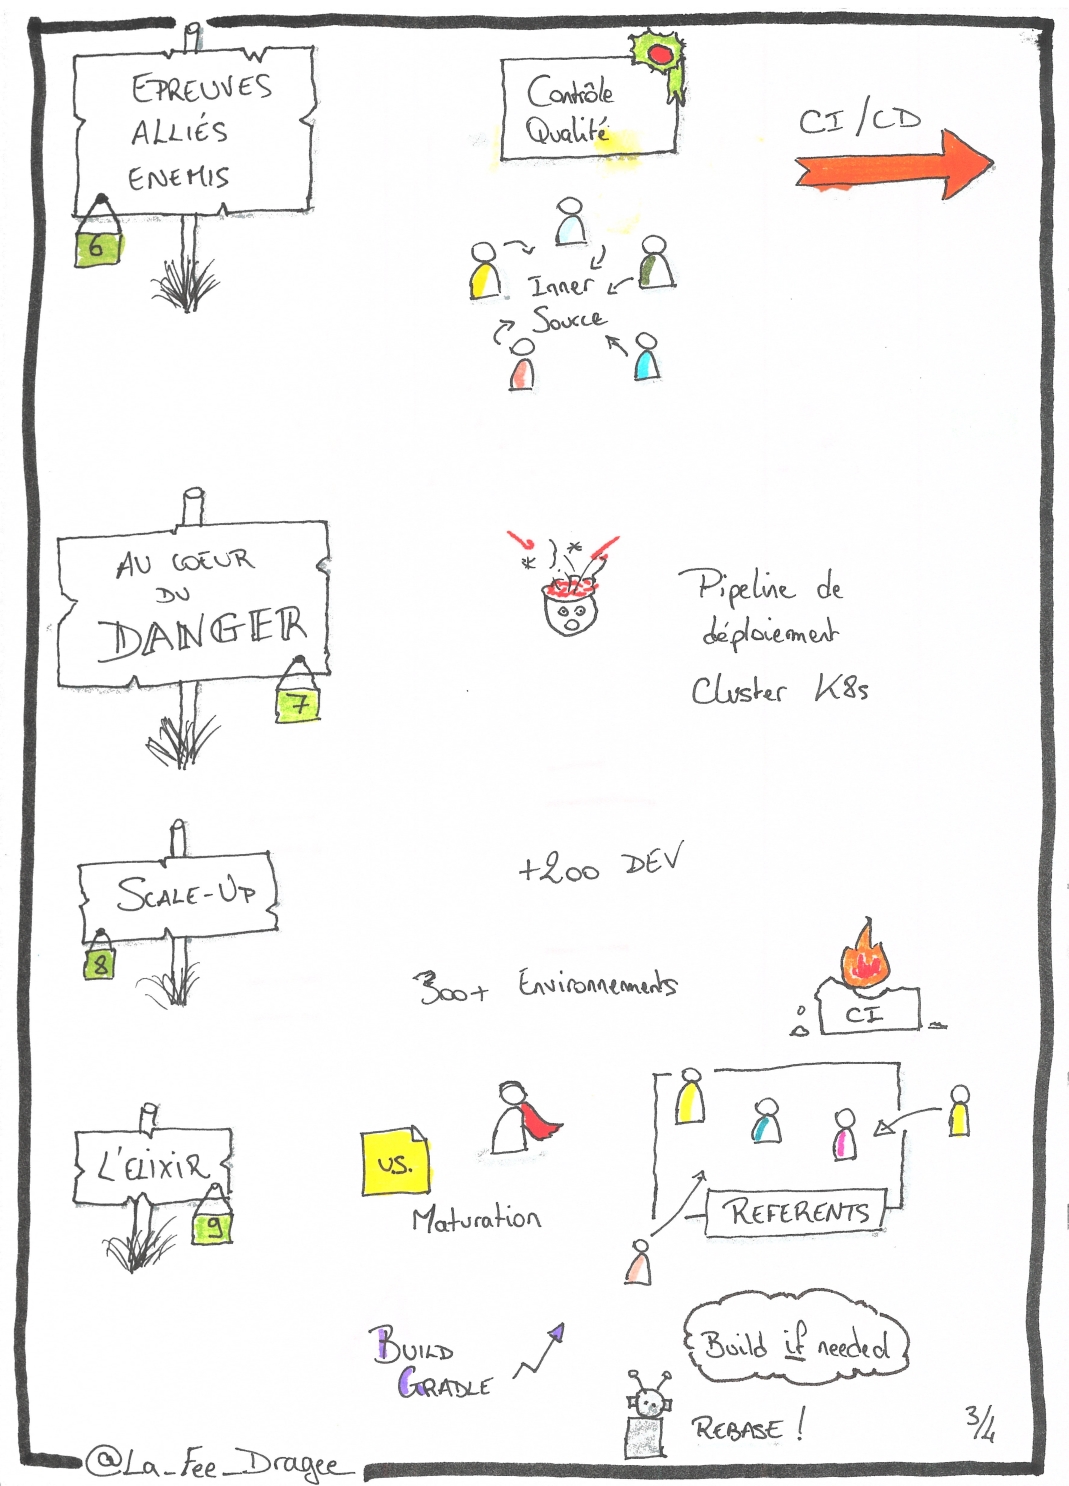 EPREUVES
ALLIÉS
ENEMIS
6
Contrôle
Qualité
CI/CD
Inner
Source
AU COEUR
DU
DANGER
7
Pipeline de
déploiement
Cluster K8s
SCALE-UP
8
+200 DEV
300+ Environnements
CI
L'ELIXIR
9
U.S.
Maturation
REFERENTS
BUILD
GRADLE
Build if needed
REBASE !
3/4
@La_Fee_Dragee